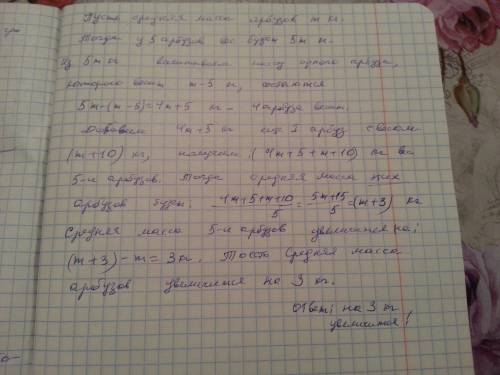 Пусть средняя масса арбузов m кг.
Тогда у 5 арбузов вес будет 5m кг.
Из 5m кг вычитаем массу одного арбуза,
которого весит m-5 кг, останется
5m-(m-5)=4m+5 кг - 4 арбуза весят.
Добавим 4m+5 кг еще 1 арбуз с весом
(m+10) кг, находим (4m+5+m+10) кг вес
5-и арбузов. Тогда средняя масса этих
арбузов будет: 4m+5+m+10/5 = 5m+15/5 = (m+3) кг
Средняя масса 5-и арбузов увеличится на:
(m+3)-m= 3 кг. Тоесть средняя масса
арбузов увеличится на 3 кг.
Ответ: на 3 кг
увеличится!